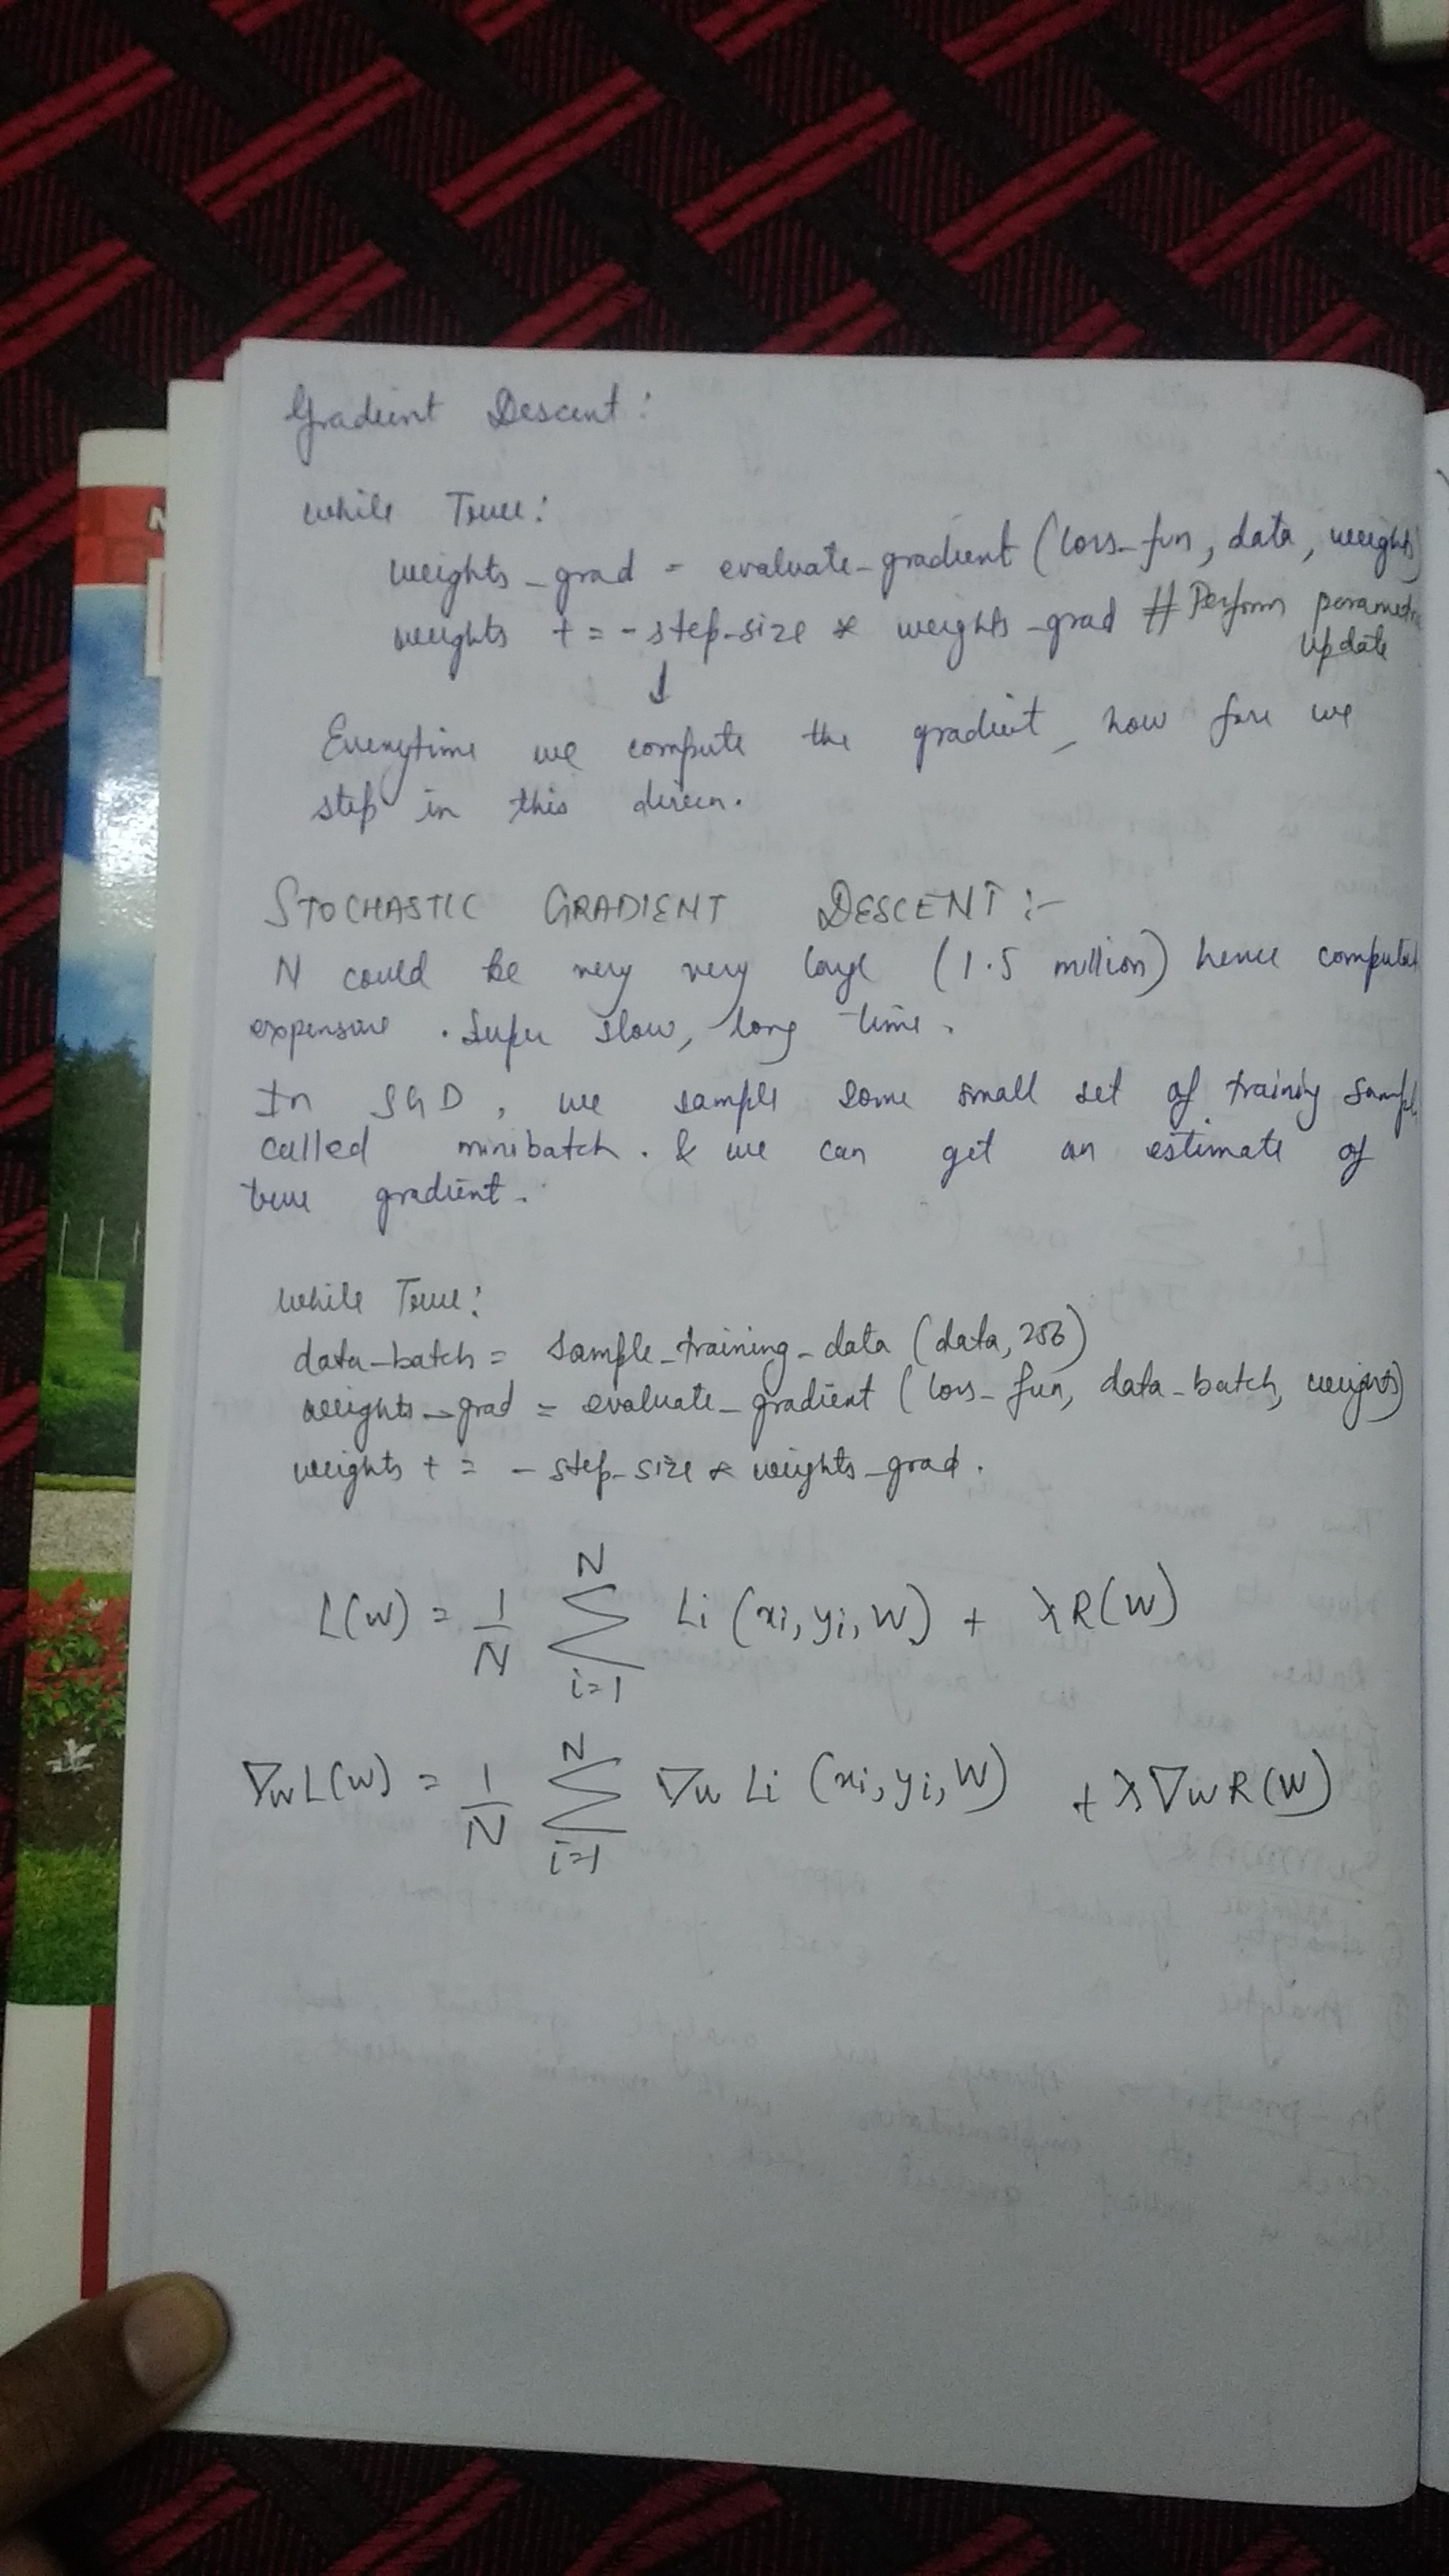 Gradient Descent:
while True:
weights_grad = evaluate_gradient (loss_fun, data, weights)
weights += -step_size * weights_grad # Perform parameter
update
↓
Everytime we compute the gradient, how far we
step in this direcn.
STOCHASTIC GRADIENT DESCENT :-
N could be very very large (1.5 million) hence computat
expensive. Super slow, long time.
In SGD, we sample some small set of training sampl
called minibatch. & we can get an estimate of
true gradient.
while True:
data_batch = sample_training_data (data, 256)
weights_grad = evaluate_gradient (loss_fun, data_batch, weights)
weights += -step_size * weights_grad.
L(W) = 1/N Σ_{i=1}^{N} Li (xi, yi, W) + λR(W)
∇w L(W) = 1/N Σ_{i=1}^{N} ∇w Li (xi, yi, W) + λ∇w R(W)